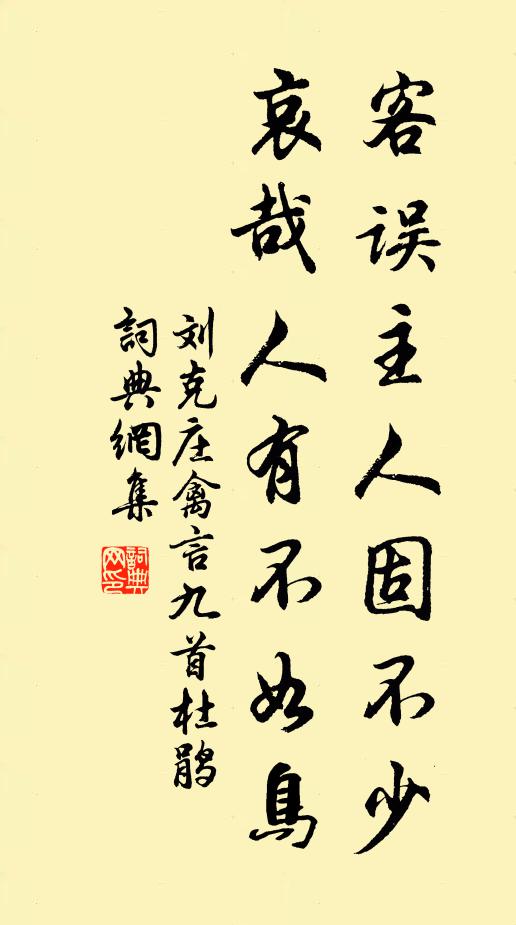 客误主人固不少
哀哉人有不如鳥
刘克庄禽言九首杜鹃
詞典網集
詞典
网印